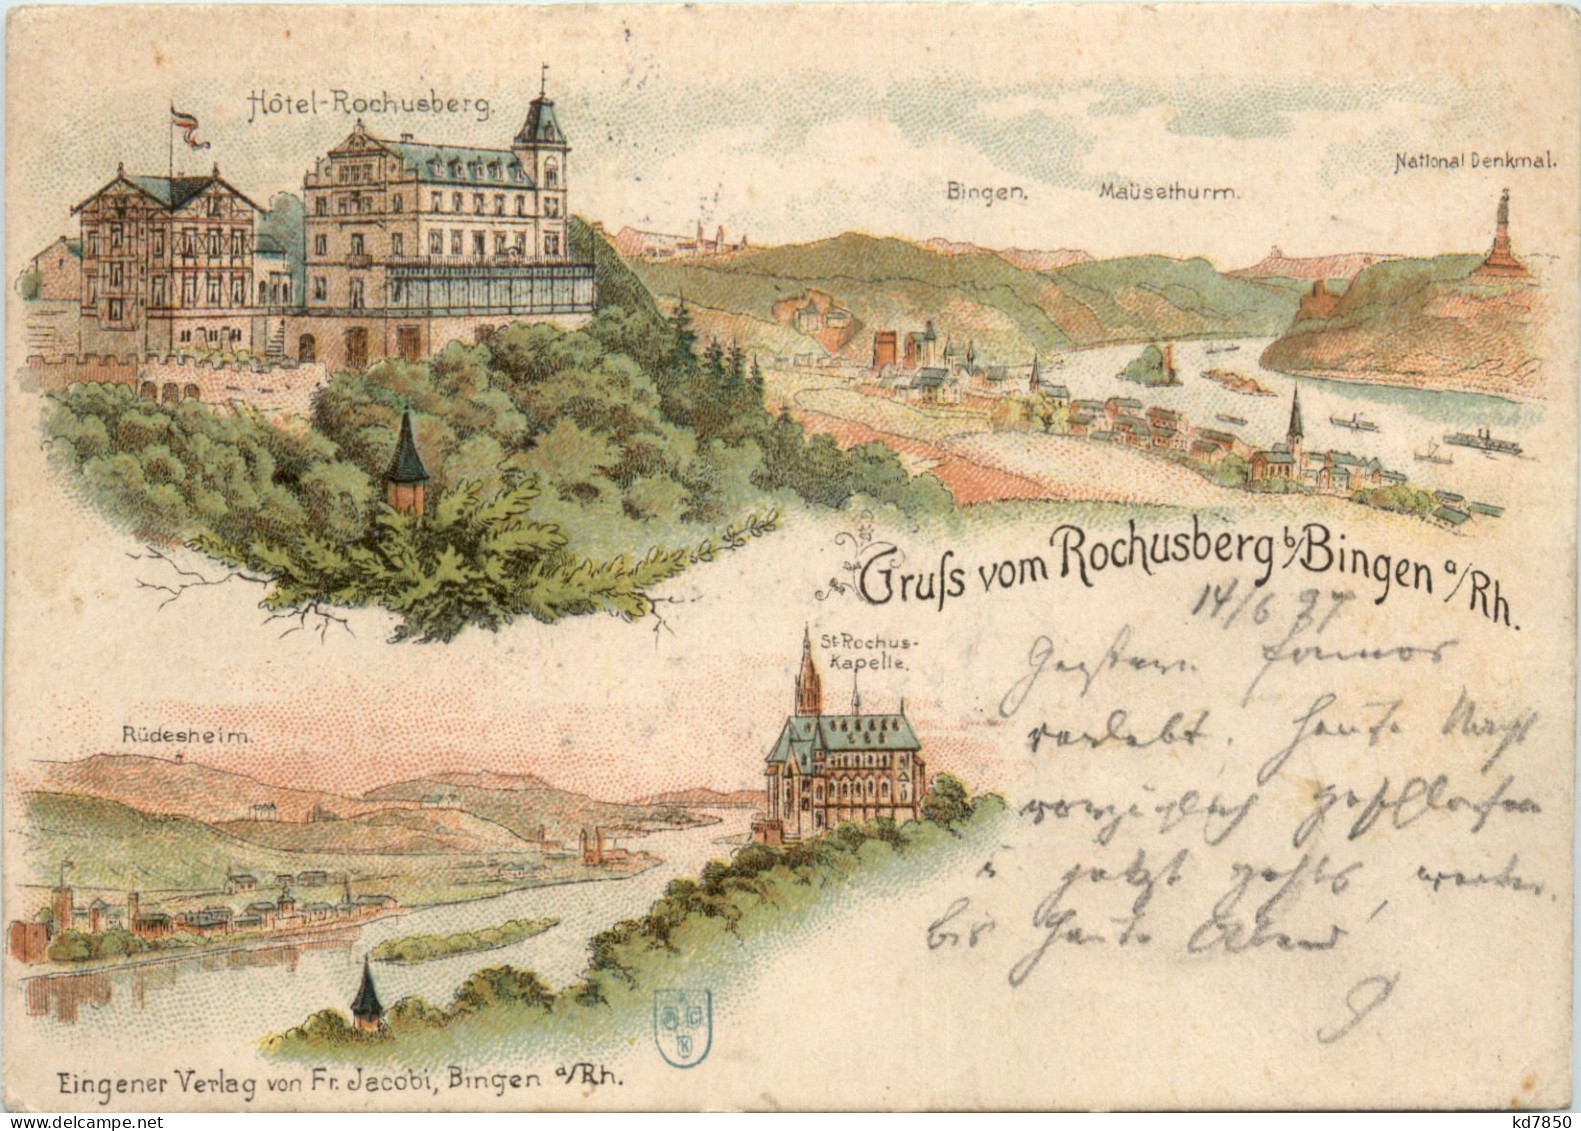 Hôtel-Rochusberg.
National Denkmal.
Bingen.
Maüsethurm.
Gruſs vom Rochusberg b/Bingen a/Rh.
14/6 97
Gestern famos
verlebt. Heute Nacht
vorzüglich geschlafen
u jetzt gehts weiter.
bis heute Abend
St. Rochus-
Kapelle.
Rüdesheim.
Eingener Verlag von Fr. Jacobi, Bingen a/Rh.
kd7850